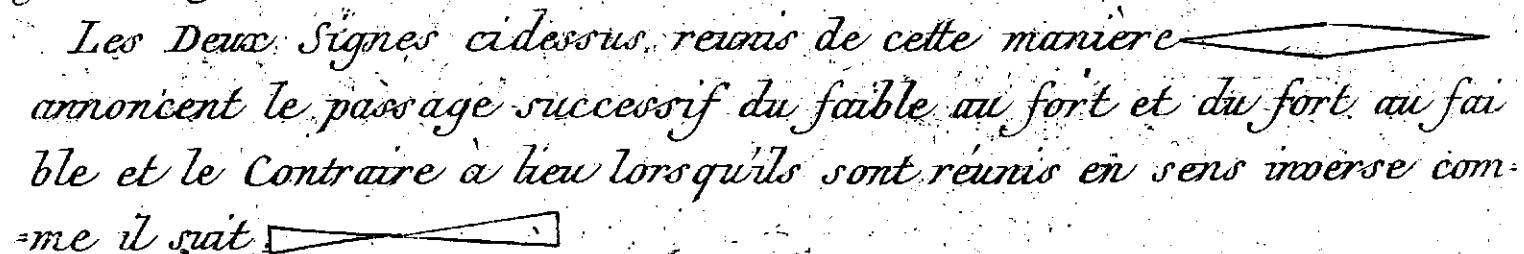 Les Deux Signes cidessus, reunis de cette manière
annoncent le passage successif du faible au fort et du fort au fai
ble et le Contraire à lieu lorsqu'ils sont réunis en sens inverse com=
=me il suit